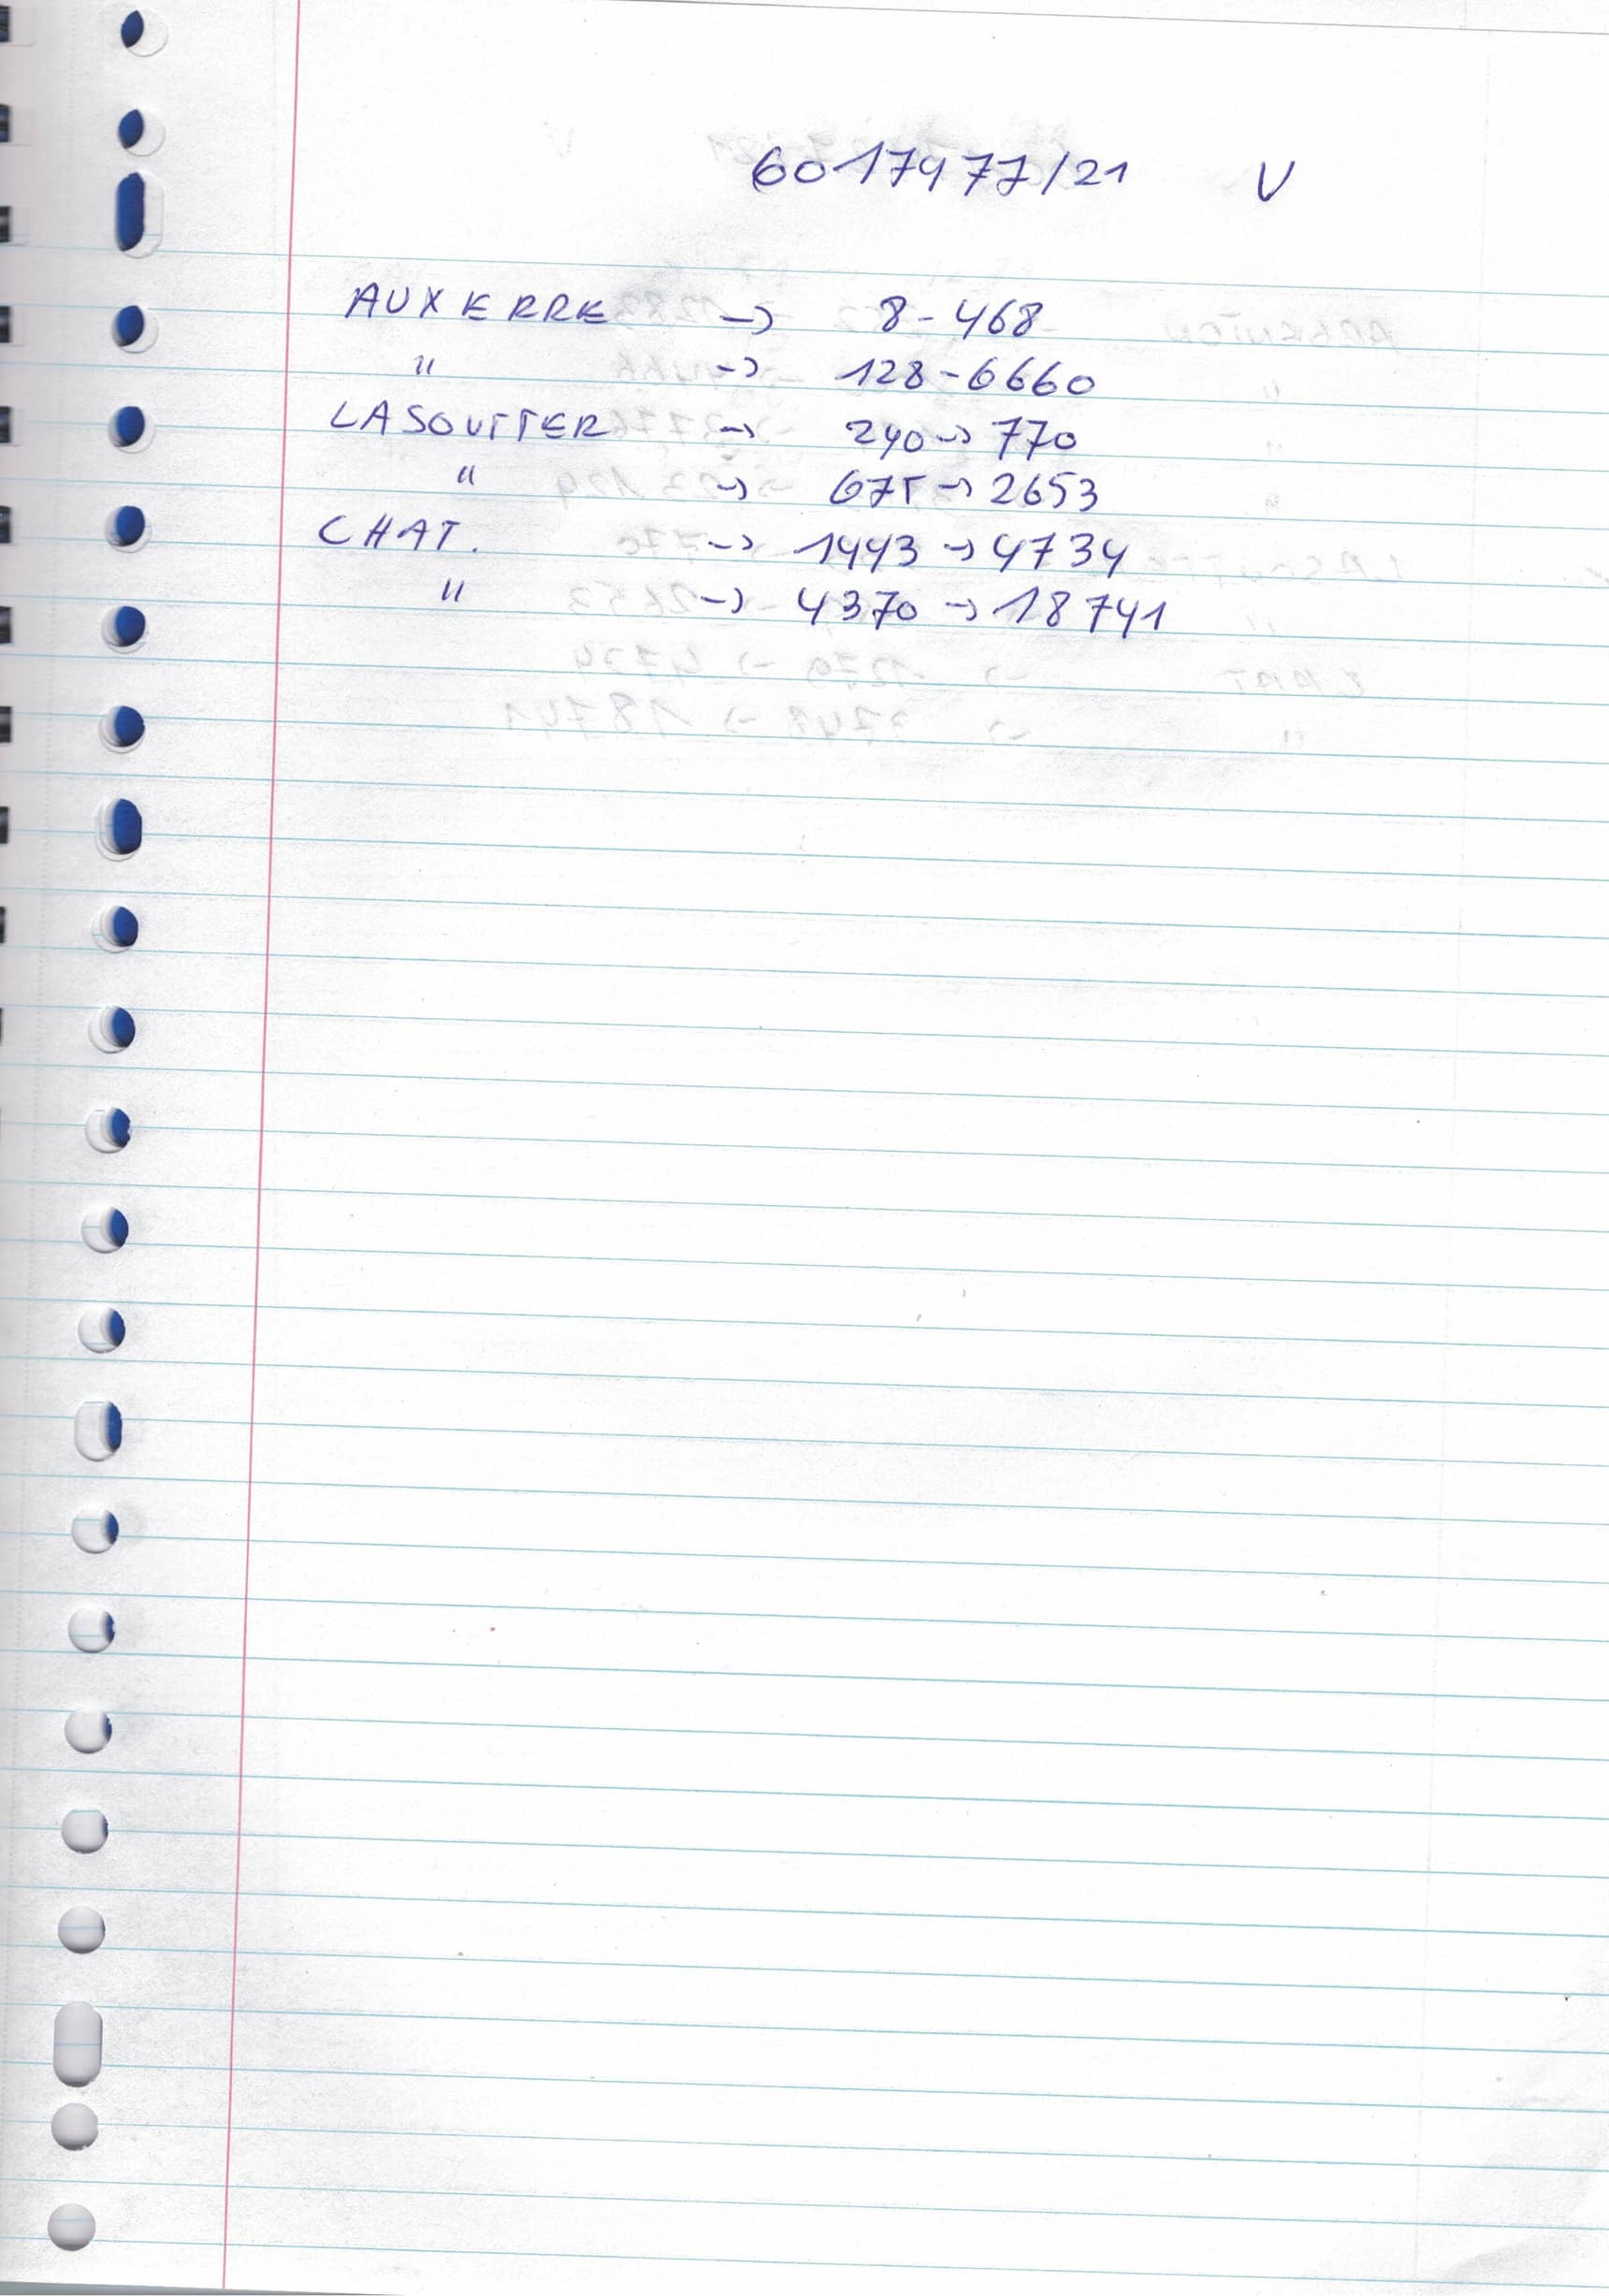 6017477/21 V
AUXERRE -> 8-468
" -> 128-6660
LASOUTTER -> 240 -> 770
" -> 675 -> 2653
CHAT. -> 1443 -> 4734
" -> 4370 -> 18741